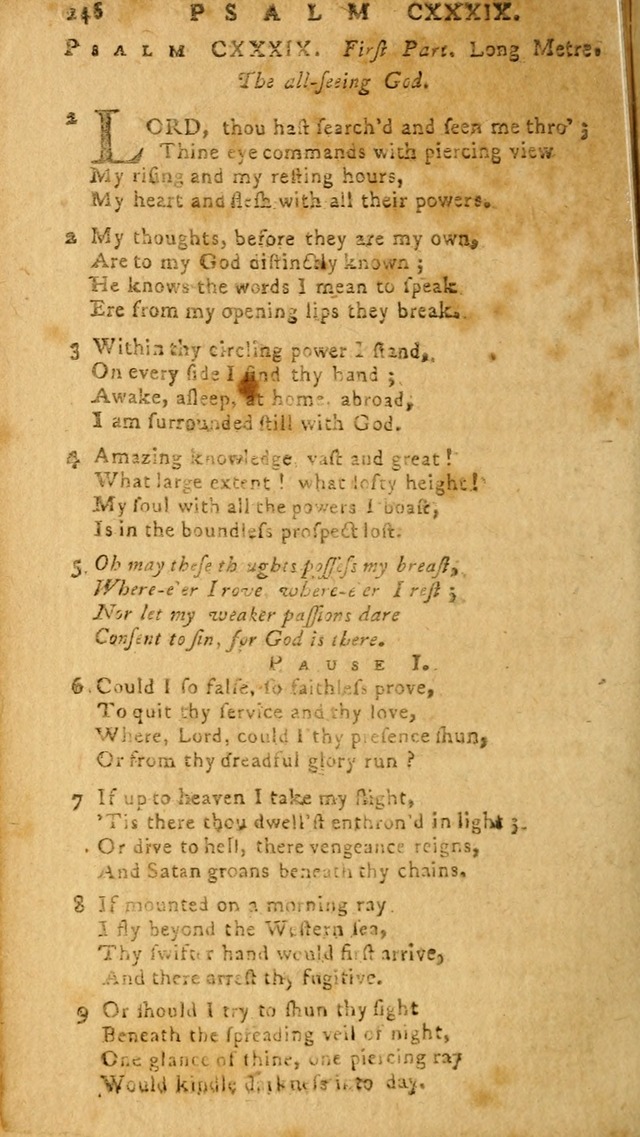 246 PSALM CXXXIX.
PSALM CXXXIX. Firſt Part. Long Metre.
The all-ſeeing God.
LORD, thou haſt ſearch'd and ſeen me thro' ;
Thine eye commands with piercing view
My riſing and my reſting hours,
My heart and fleſh with all their powers.
2 My thoughts, before they are my own,
Are to my God diſtinctly known ;
He knows the words I mean to ſpeak
Ere from my opening lips they break.
3 Within thy circling power I ſtand,
On every ſide I find thy hand ;
Awake, aſleep, at home, abroad,
I am ſurrounded ſtill with God.
4 Amazing knowledge, vaſt and great !
What large extent ! what lofty height !
My ſoul with all the powers I boaſt,
Is in the boundleſs proſpect loſt.
5 Oh may theſe thoughts poſſeſs my breaſt,
Where-e'er I rove, where-e'er I reſt ;
Nor let my weaker paſſions dare
Conſent to ſin, for God is there.
PAUSE I.
6 Could I ſo falſe, ſo faithleſs prove,
To quit thy ſervice and thy love,
Where, Lord, could I thy preſence ſhun,
Or from thy dreadful glory run ?
7 If up to heaven I take my flight,
'Tis there thou dwell'ſt enthron'd in light ;
Or dive to hell, there vengeance reigns,
And Satan groans beneath thy chains.
8 If mounted on a morning ray
I fly beyond the Weſtern ſea,
Thy ſwifter hand would firſt arrive,
And there arreſt thy fugitive.
9 Or ſhould I try to ſhun thy ſight
Beneath the ſpreading veil of night,
One glance of thine, one piercing ray
Would kindle darkneſs into day.